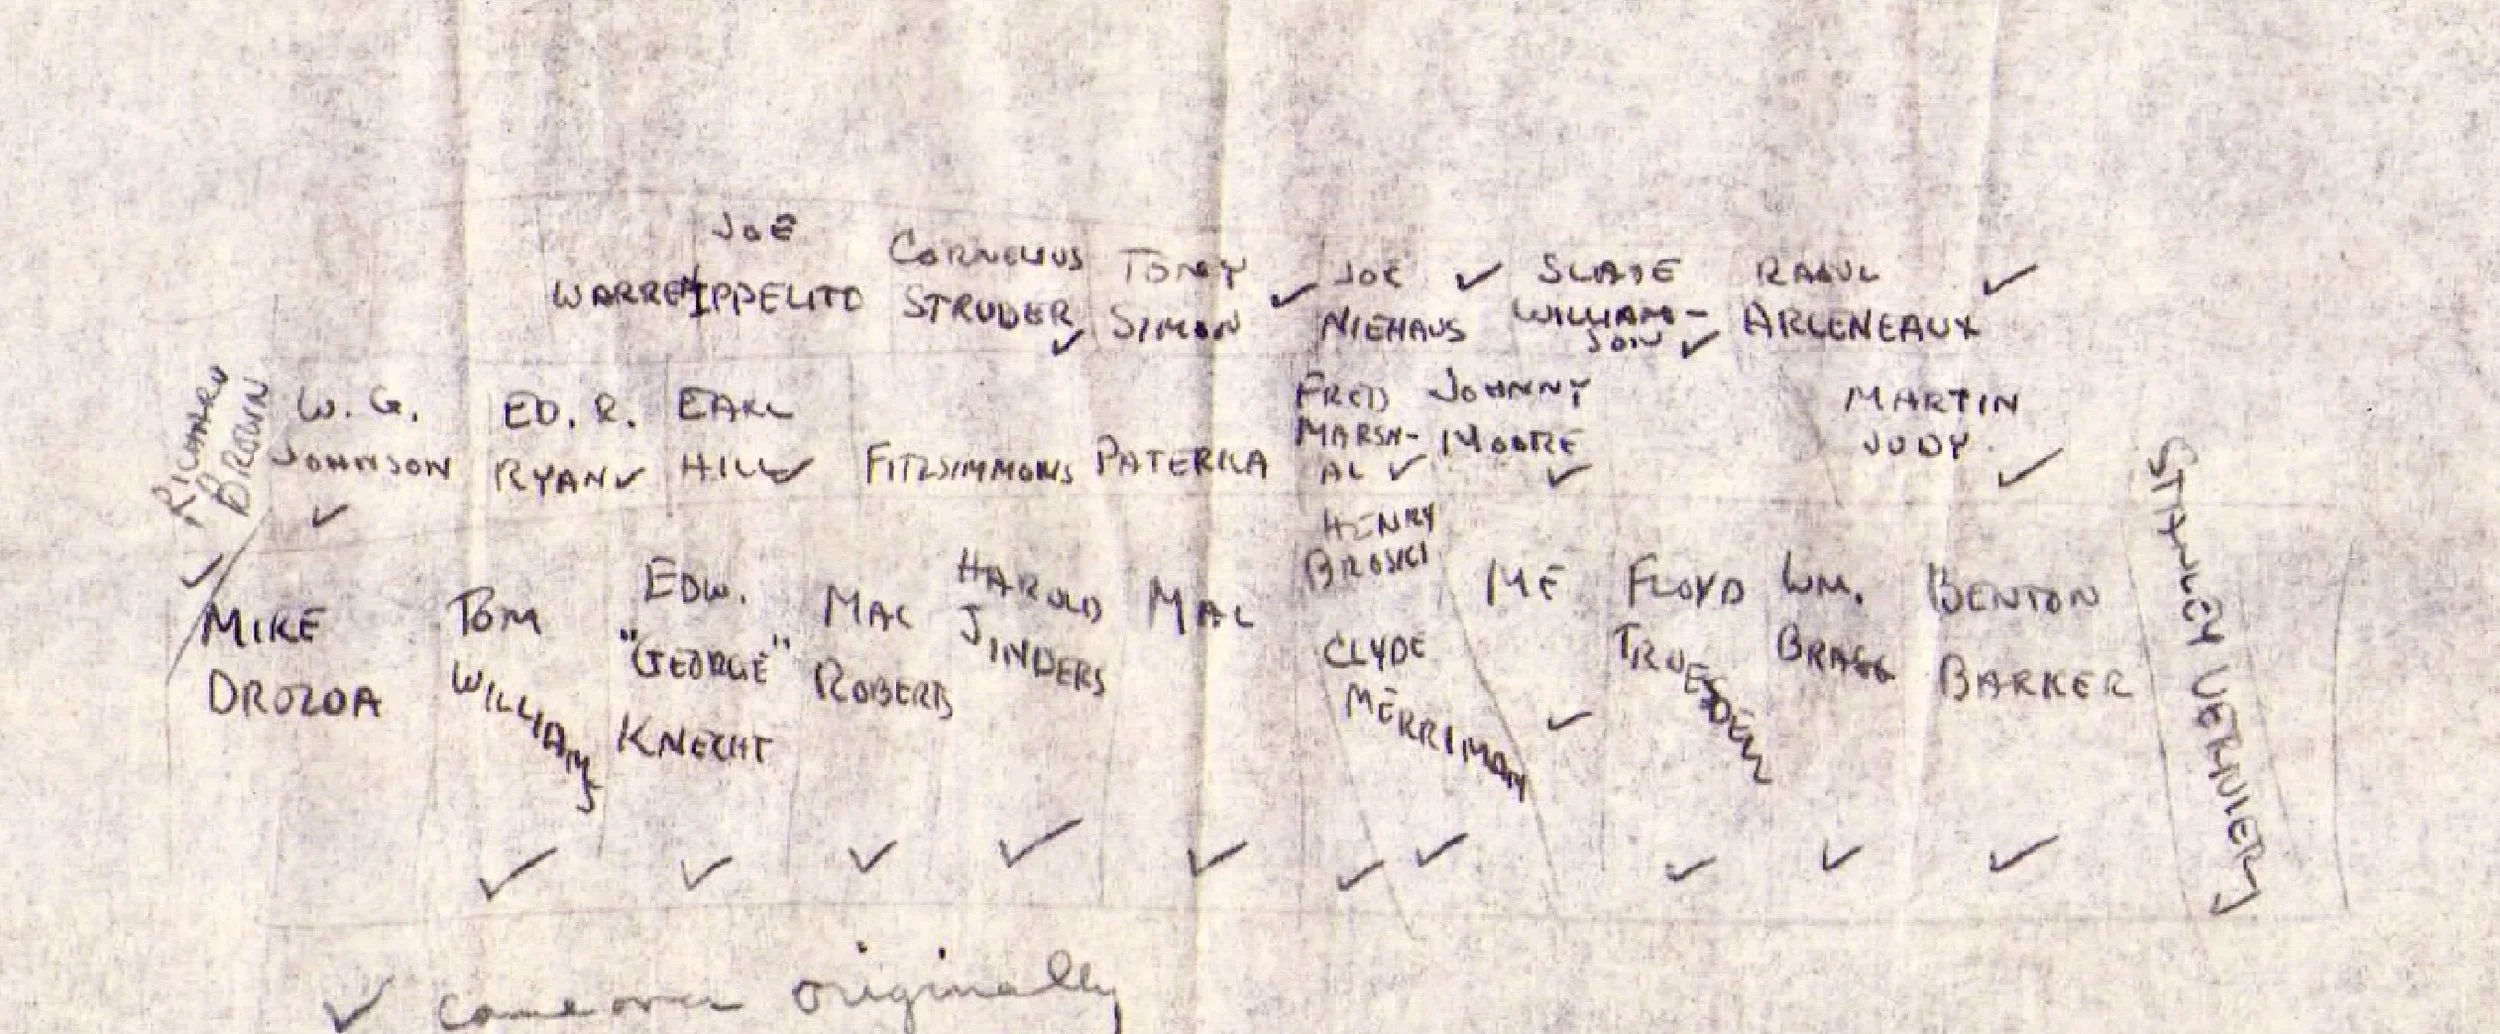 JOE
WARREN IPPELITO
CORNELIUS
STRUDER ✓
TONY
SIMON ✓
JOE ✓
NIEHAUS
SLADE
WILLIAM-
SON ✓
RAOUL ✓
ARCENEAUX
RICHARD
BROWN ✓
W. G.
JOHNSON ✓
ED. R.
RYAN ✓
EARL
HILL ✓
FITZSIMMONS
PATERKA
FRED
MARSH-
AL ✓
JOHNNY
MOORE ✓
MARTIN
JUDY ✓
MIKE
DROZDA
TOM
WILLIAMS ✓
EDW.
"GEORGE"
KNECHT ✓
MAC
ROBERTS ✓
HAROLD
JINDERS ✓
MAL ✓
HENRY
BROSKI ✓
CLYDE
MERRIMAN ✓
ME ✓
FLOYD
TRUESDELL ✓
WM.
BRAGG ✓
BENTON
BARKER ✓
STANLEY VERNIER
✓ came over originally